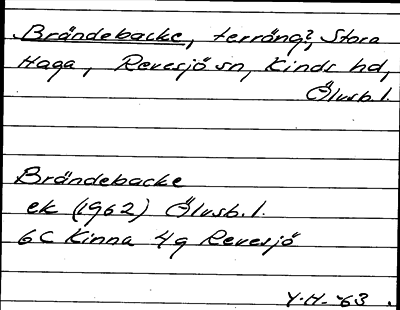 Brändebacke, terräng?, Stora
Haga, Revesjö sn, Kinds hd,
Älvsb.l.
Brändebacke
ek (1962) Älvsb.l.
6C Kinna 4g Revesjö
Y.H. -63.